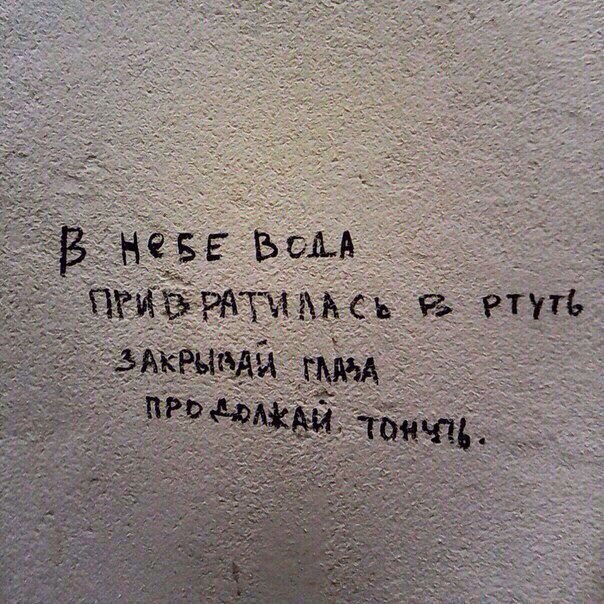 В НеБЕ ВОДА
ПРИВРАТИЛАСЬ В РТУТЬ
ЗАКРЫВАЙ ГЛАЗА
ПРОДОЛЖАЙ ТОНУТЬ.